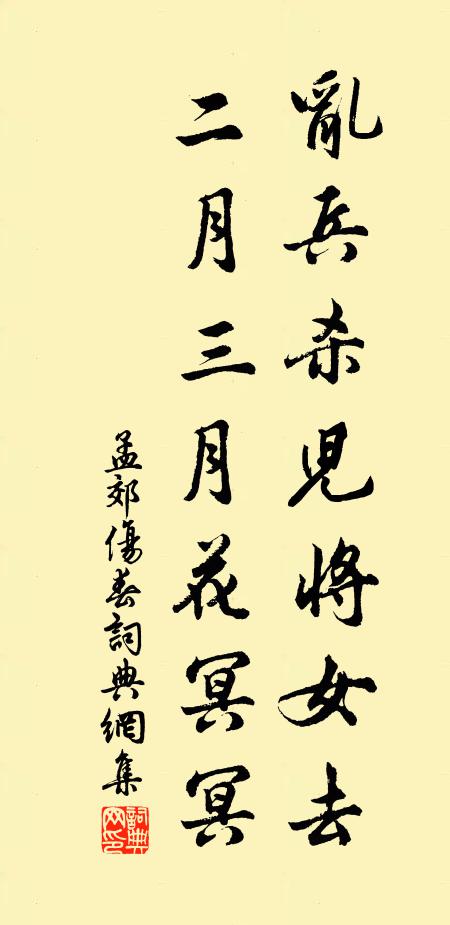 亂兵杀兒將女去
二月三月花冥冥
孟郊傷春詞典網集
詞典網印